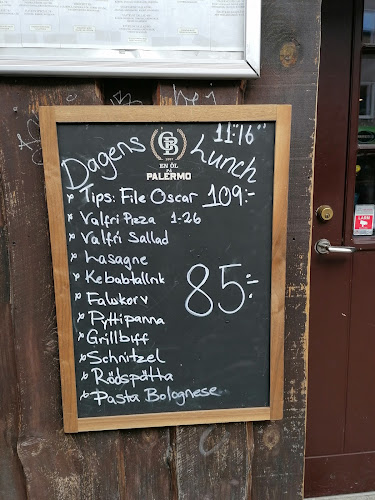 11-16"
GB
EN ÖL
PALERMO
Dagens Lunch
Tips: File Oscar 109:-
Valfri Pizza 1-26
Valfri Sallad
Lasagne
Kebabtallrik
Falukorv
Pyttipanna
Grillbiff
Schnitzel
Rödspätta
Pasta Bolognese
85:-
LARM